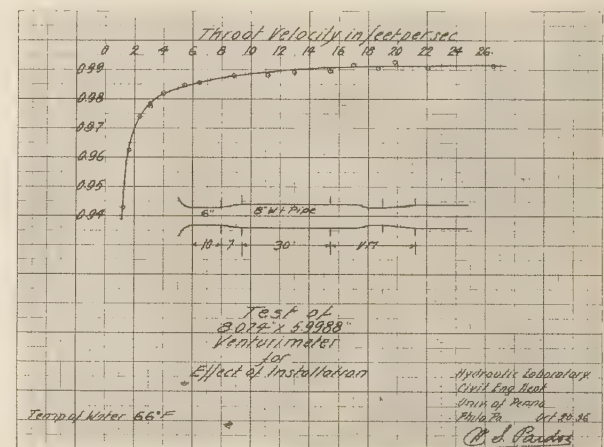 Throat Velocity in feet per sec
0 2 4 6 8 10 12 14 16 18 20 22 24 26
0.99
0.98
0.97
0.96
0.95
0.94
6" 8" Wt Pipe
10 7 30' V.M.
Test of
8.074" x 5.9988"
Venturimeter
for
Effect of Installation
Temp of Water 66°F
Hydraulic Laboratory
Civil Eng Dept
Univ of Penna
Phila Pa Oct 20 36
W. S. Pardoe